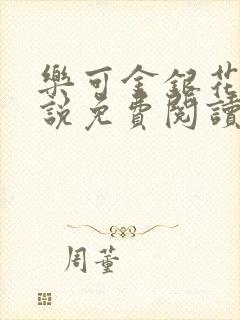 樂可金銀花
說免費閱讀
周董